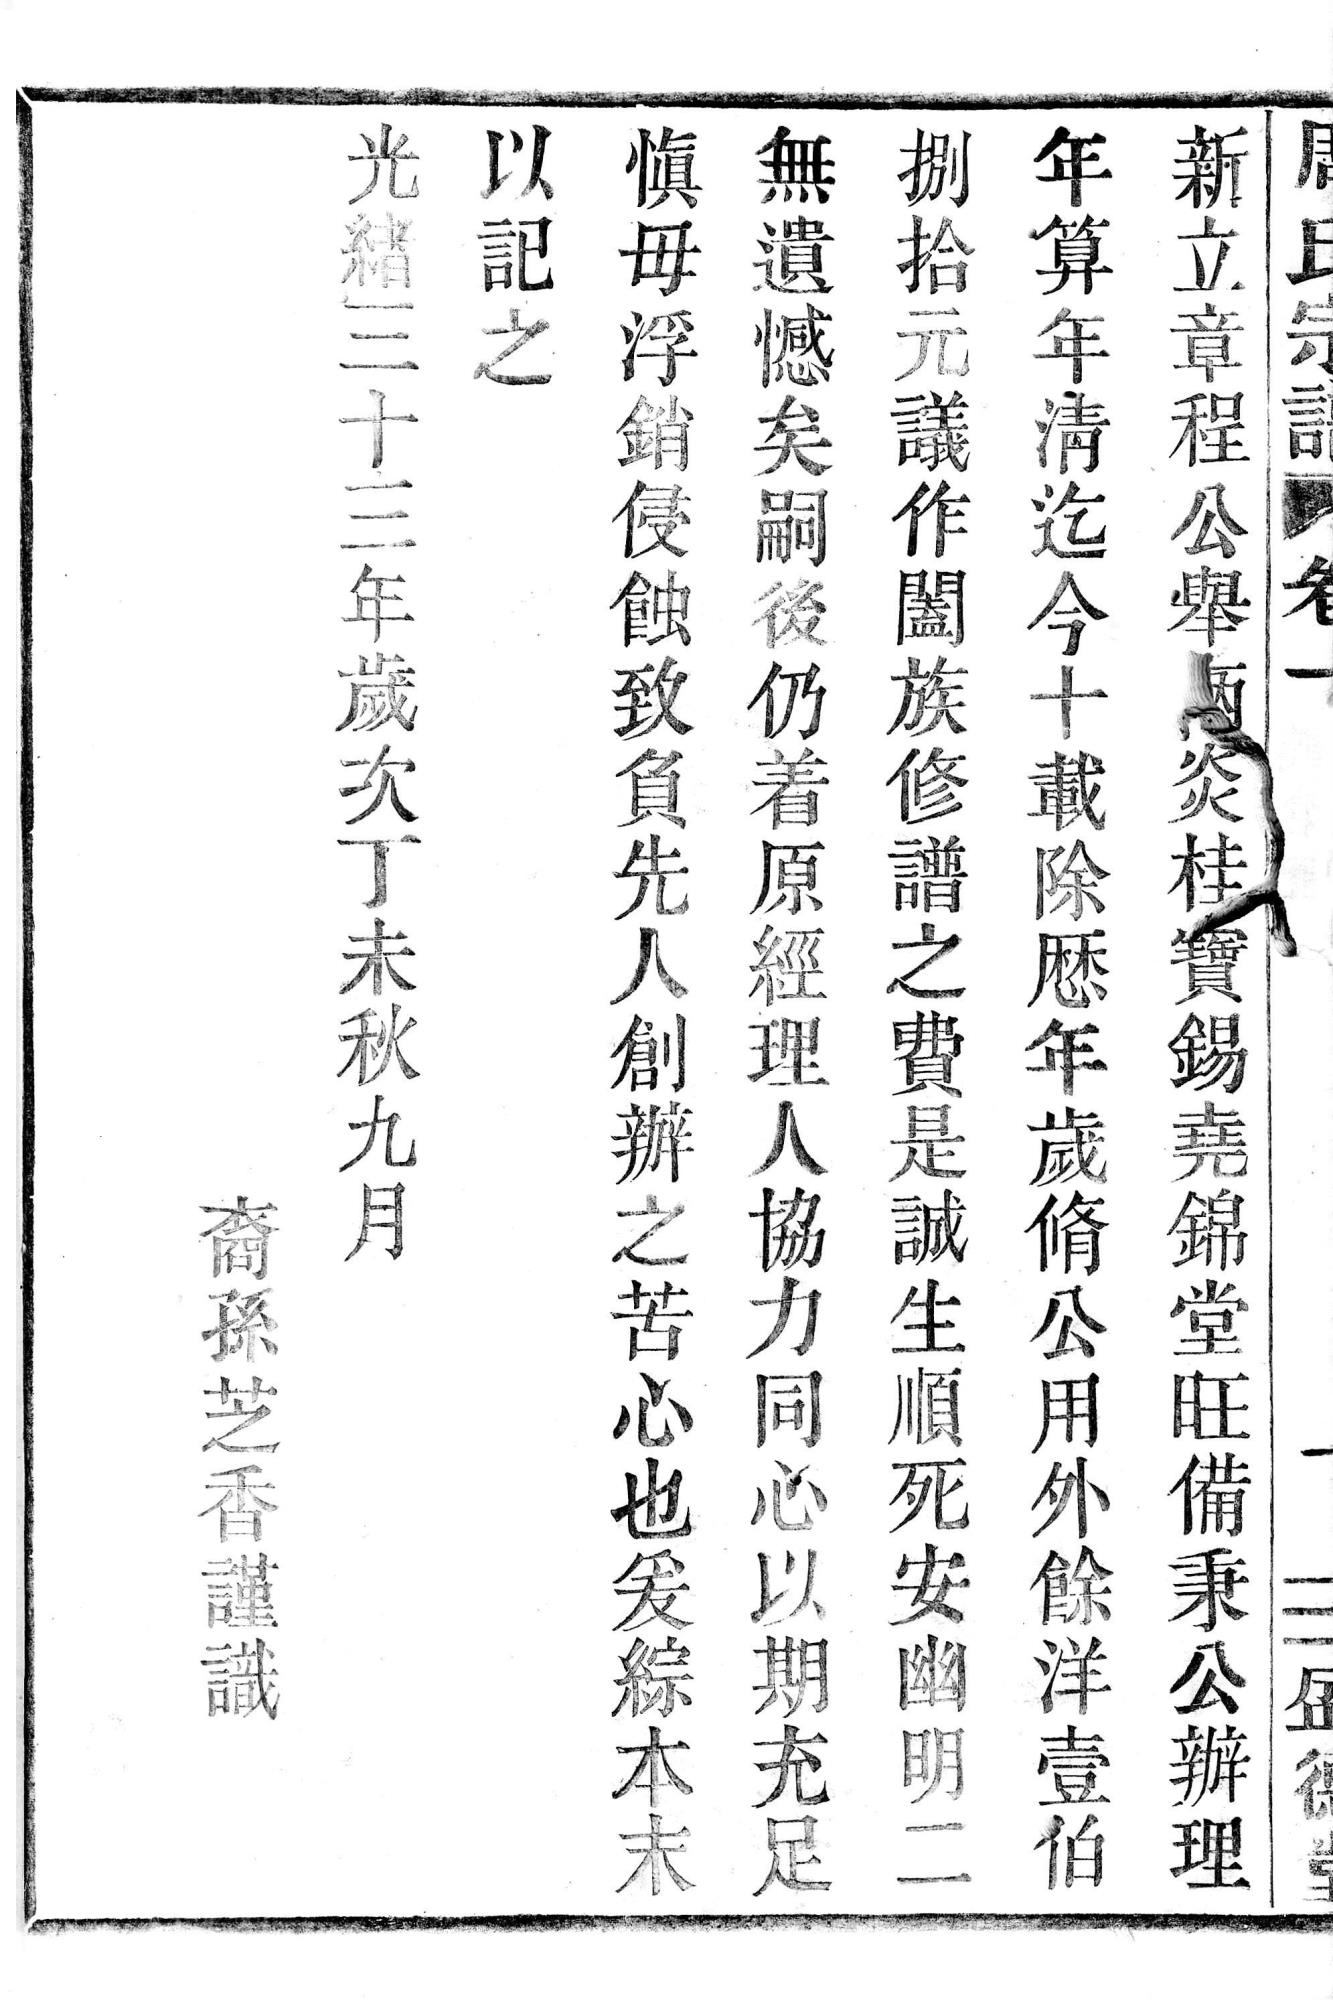 周氏宗譜 卷一 三 盛德堂
新立章程公舉炎桂寶錫堯錦堂旺備秉公辦理
年算年清迄今十載除厯年歲脩公用外餘洋壹伯
捌拾元議作闔族修譜之費是誠生順死安幽明二
無遺憾矣嗣後仍着原經理人協力同心以期充足
慎毋浮銷侵蝕致負先人創辦之苦心也爰綜本末
以記之
光緒三十三年歲次丁未秋九月
裔孫芝香謹識